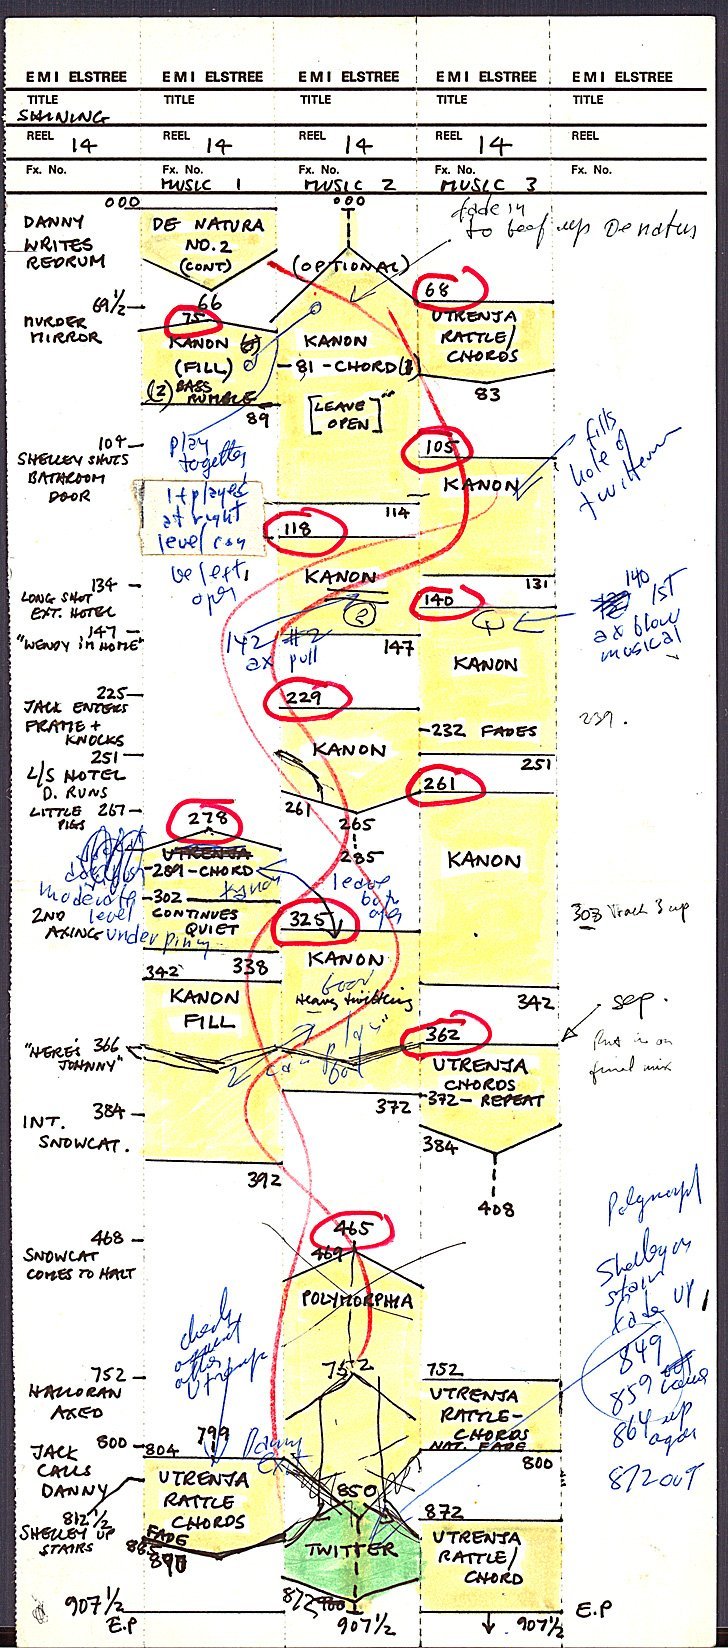 EMI ELSTREE EMI ELSTREE EMI ELSTREE EMI ELSTREE EMI ELSTREE
TITLE TITLE TITLE TITLE TITLE
SHINING
REEL 14 REEL 14 REEL 14 REEL 14 REEL
Fx. No. Fx. No. Fx. No. Fx. No. Fx. No.
MUSIC 1 MUSIC 2 MUSIC 3
000 000
fade in
to beef up De natura
DANNY
WRITES
REDRUM
DE NATURA
NO.2
(CONT)
(OPTIONAL)
68
69½
66
75
MURDER
MIRROR
UTRENJA
RATTLE/
CHORDS
KANON
(FILL)
(2) BASS
RUMBLE
KANON
81 - CHORD
[LEAVE
OPEN]
83
89
104
SHELLEY SHUTS
BATHROOM
DOOR
play
together
105
KANON
fills
hole of
twitterun
if played
at right
level can
be left
open
114
118
KANON
2
131
134
LONG SHOT
EXT. HOTEL
147
"WENDY I'M HOME"
142 #2
ax pull
147
140
1
140
1ST
ax blow
musical
KANON
225
JACK ENTERS
FRAME +
KNOCKS
229
KANON
232 FADES
239.
251
251
L/S HOTEL
D. RUNS
261
265
285
261
LITTLE 267
PIGS
278
UTRENJA
289 - CHORD
KANON
moderate
level
302
CONTINUES
QUIET
2ND
AXING
leave
both
open
325
KANON
Heavy twittering
303 track 3 up
342 338
342
KANON
FILL
"HERE'S 366
JOHNNY"
362
sep.
Put in on
final mix
UTRENJA
CHORDS
372 - REPEAT
372
384
INT.
SNOWCAT.
384
392
408
465
468
SNOWCAT
COMES TO HALT
469
POLYMORPHIA
Polymorph
Shelley on
stairs
fade up
849
859
864 up
again
872 out
check
after
Utrenja
752
HALLORAN
AXED
752
752
UTRENJA
RATTLE-
CHORDS
NAT. FADE
800
JACK 800
CALLS
DANNY
804 799
Danny
Exit
UTRENJA
RATTLE
CHORDS
850
TWITTER
872
UTRENJA
RATTLE/
CHORD
812½
SHELLEY UP
STAIRS
FADE
865
890
872 900
907½
E.P
907½
907½
E.P